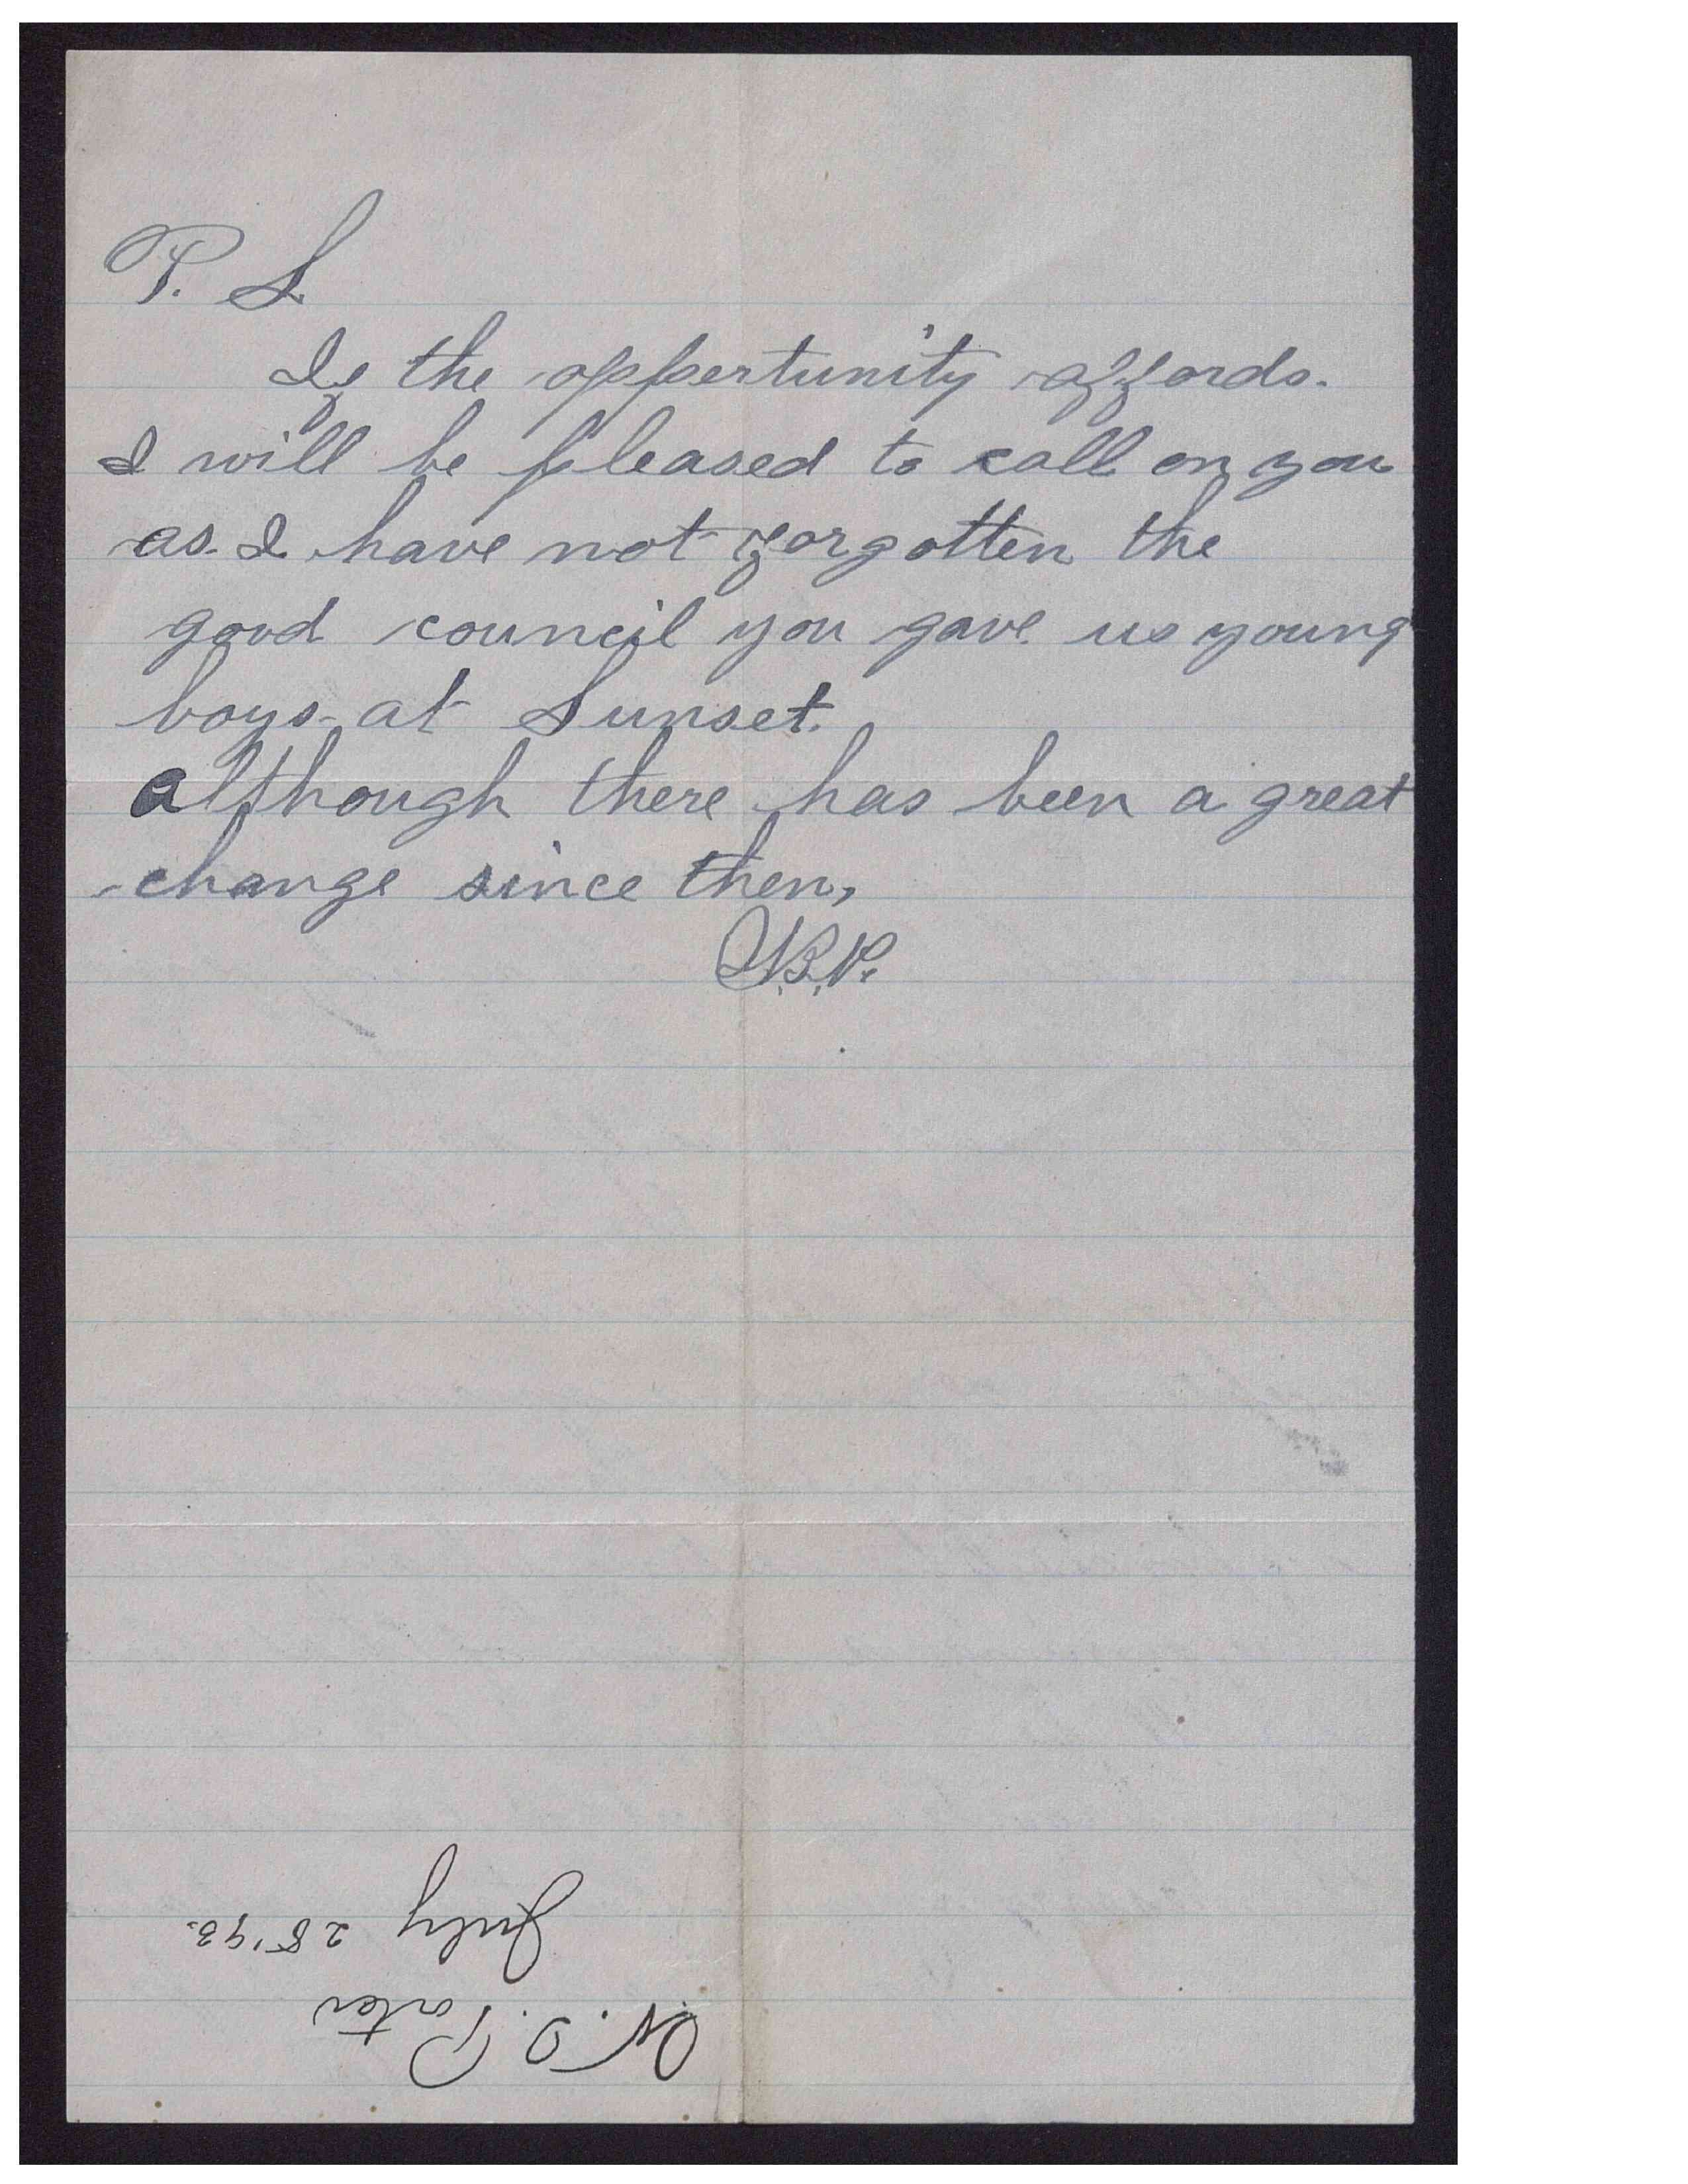 P. S.
If the oppertunity affords.
I will be pleased to call on you
as I have not forgotten the
good council you gave us young
boys at Sunset.
although there has been a great
change since then,
July 28'93.
Porter